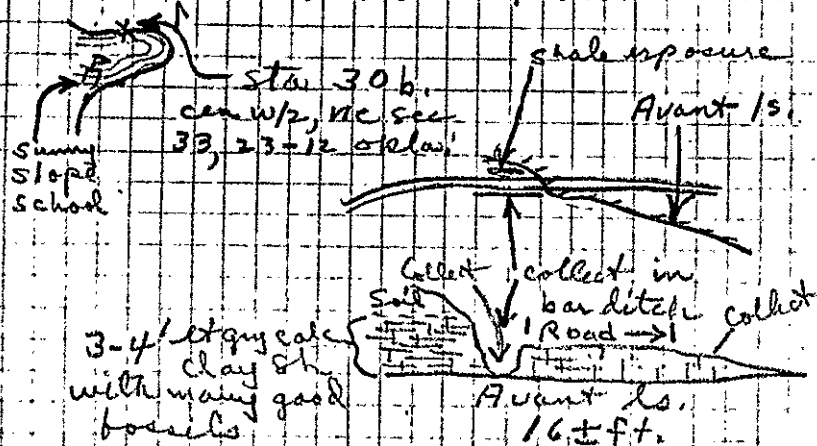 sta 30b.
cen W/2, ne sec
33, 23-12 okla.
Sunny
slope
School
shale exposure
Avant ls.
collect
collect in
bar ditch
Road
collect
Soil
3-4' lt gry calc
clay sh
with many good
fossils
Avant ls.
16± ft.